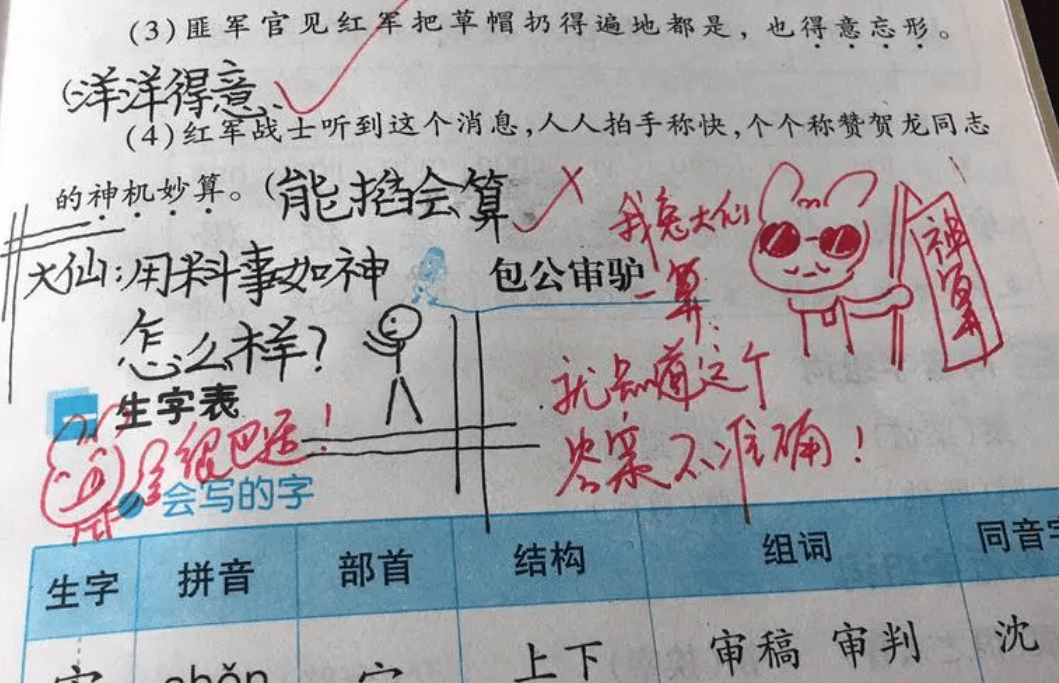 (3)匪军官见红军把草帽扔得遍地都是，也得意忘形。
(洋洋得意
(4)红军战士听到这个消息，人人拍手称快，个个称赞贺龙同志
的神机妙算。(能掐会算
大仙:用料事如神
怎么样?
包公审驴
我兔大仙
一算
就知道这个
答案不准确!
神算
生字表
很巴适!
会写的字
生字 拼音 部首 结构 组词 同音字
审 shěn 宀 上下 审稿 审判 沈